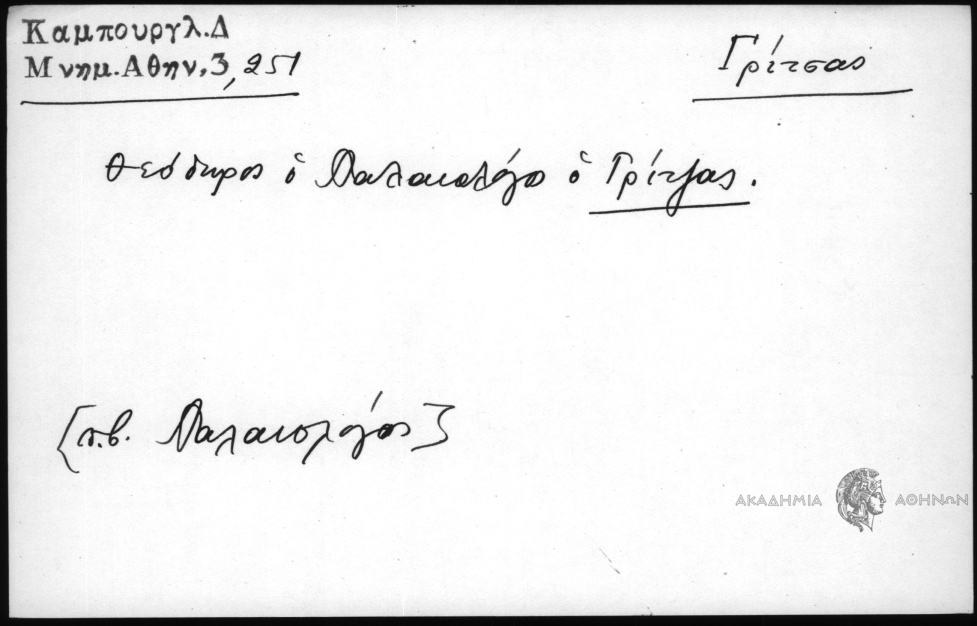 Καμπουργλ.Δ
Μνημ.Αθην.3, 251
Γρίτσας
Θεόδωρος ὁ Παλαιολόγο ὁ Γρίτζας.
[π.β. Παλαιολόγος]
ΑΚΑΔΗΜΙΑ ΑΘΗΝΩΝ